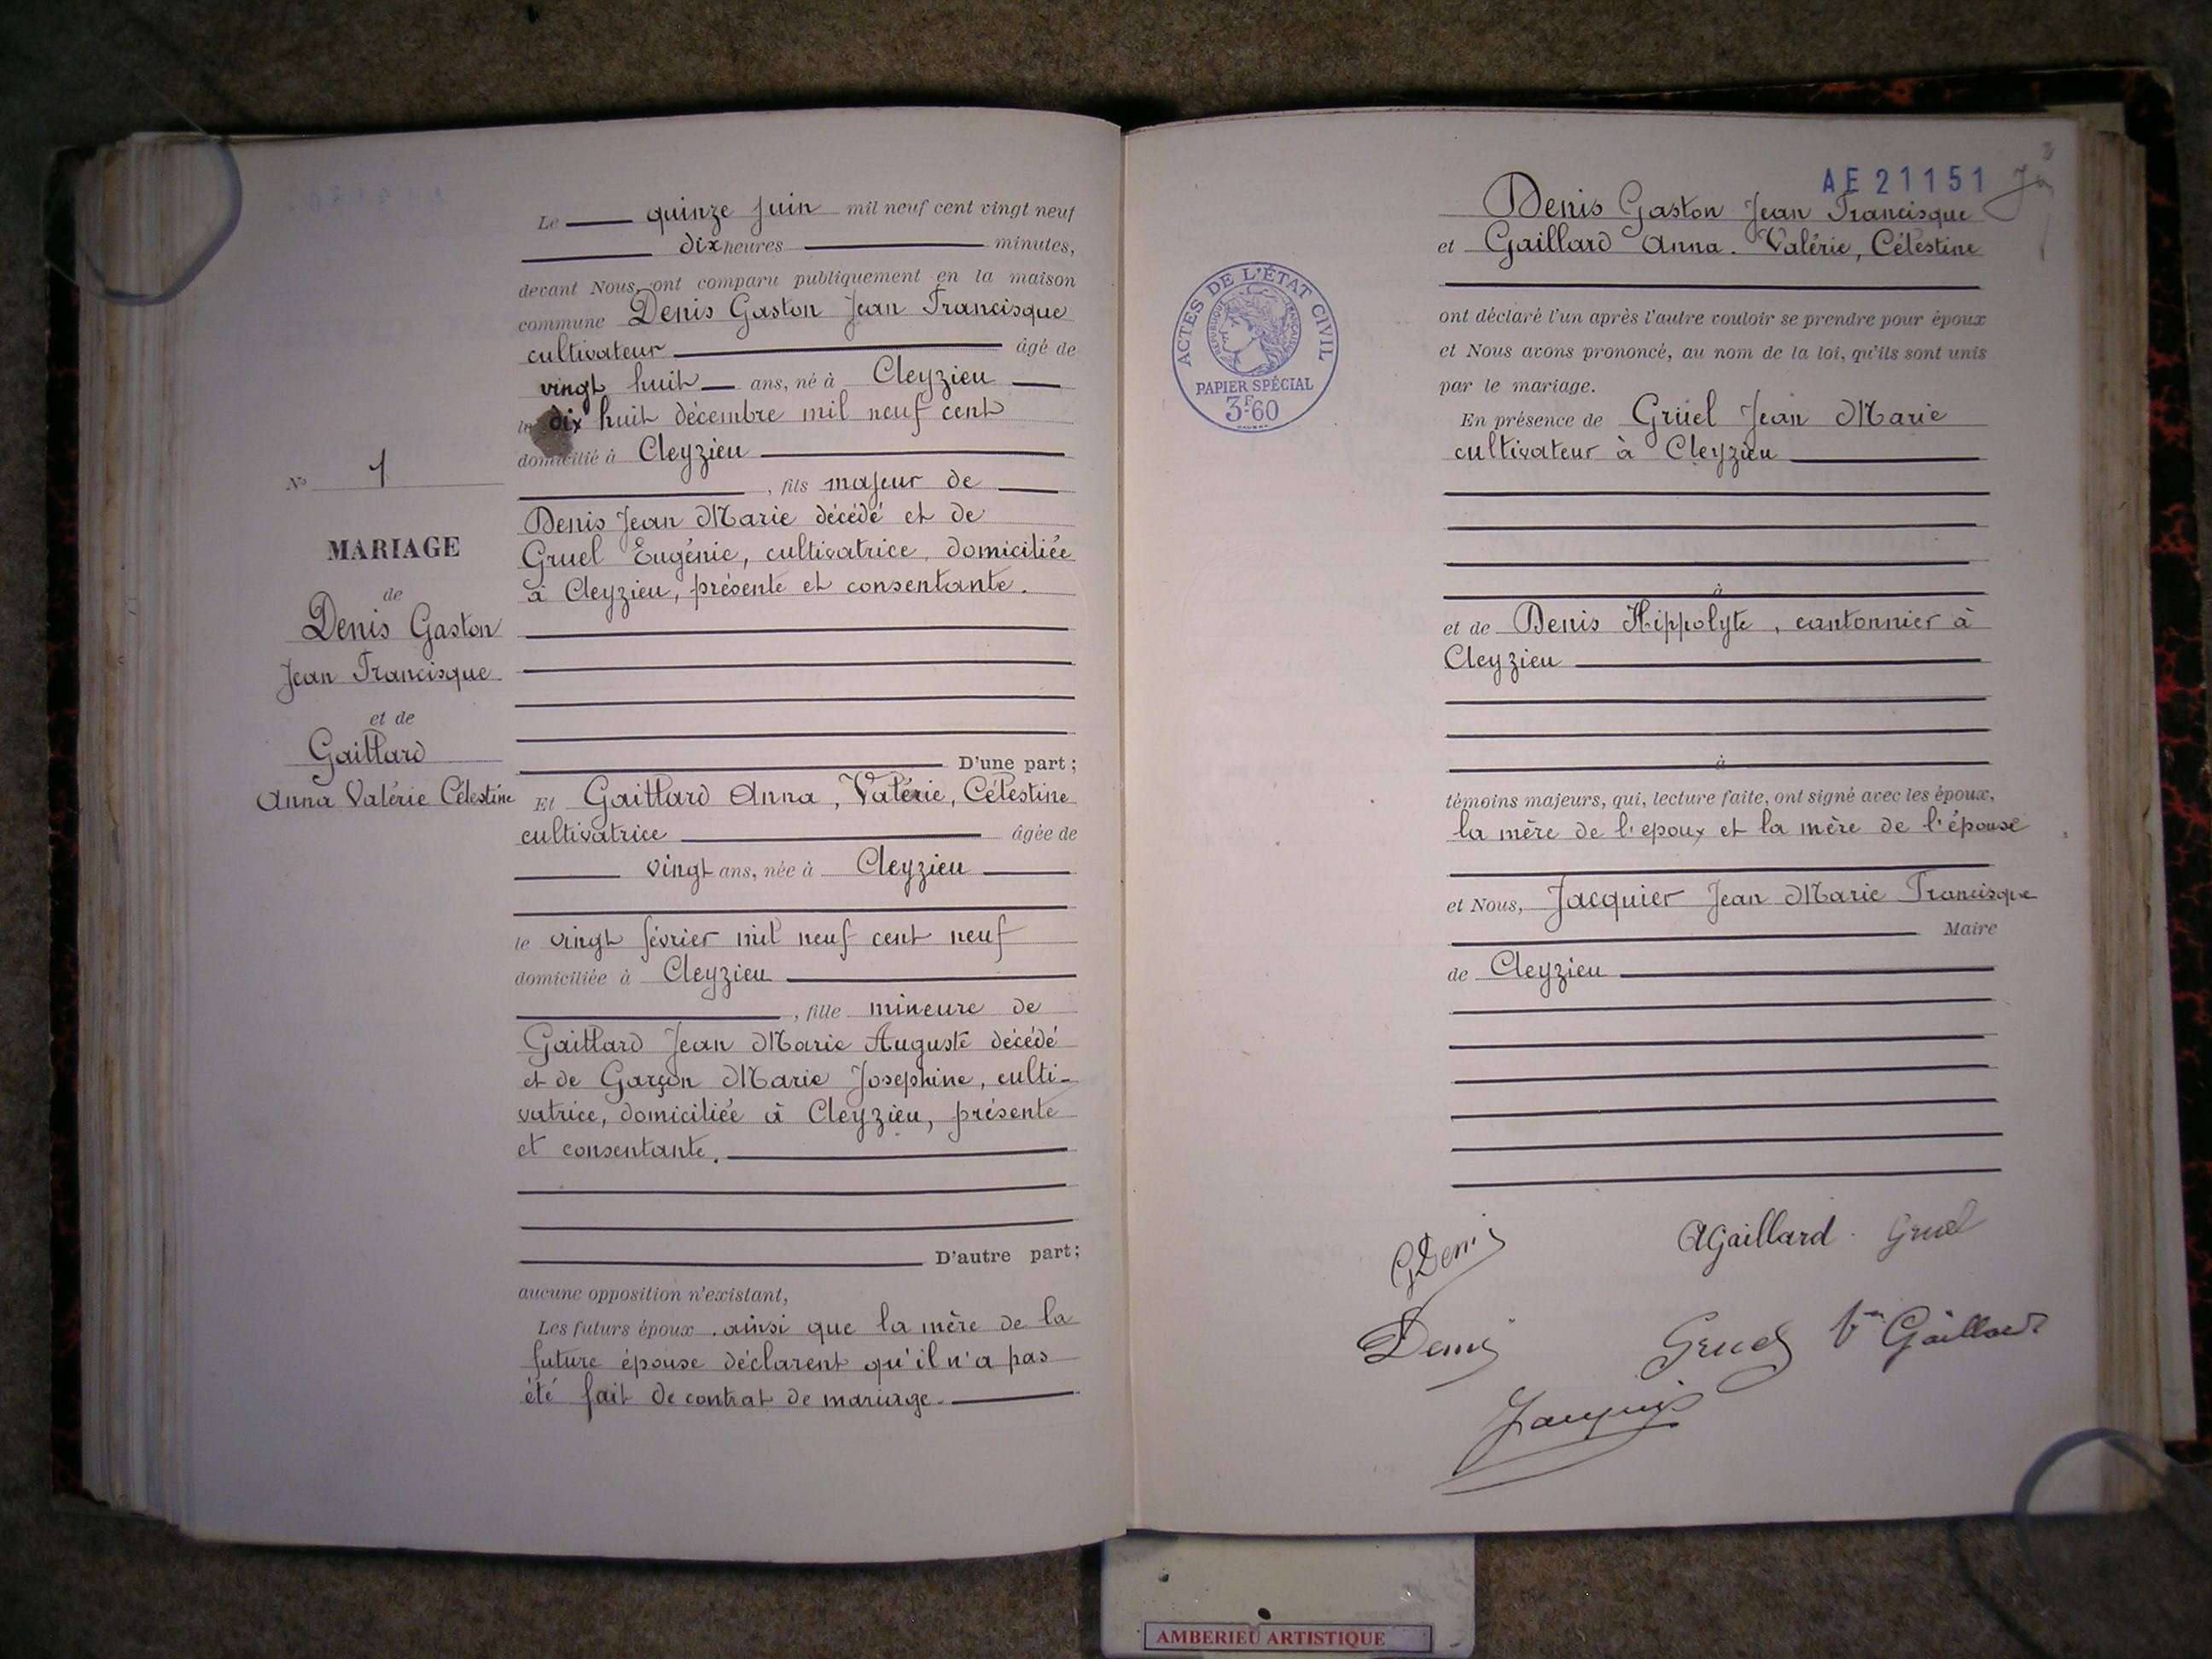 Le quinze juin mil neuf cent vingt neuf
dix heures minutes,
devant Nous, ont comparu publiquement en la maison
commune Denis Gaston Jean Francisque
cultivateur âgé de
vingt huit ans, né à Cleyzieu
le dix huit décembre mil neuf cent
domicilié à Cleyzieu
, fils majeur de
Denis Jean Marie décédé et de
Gruel Eugénie, cultivatrice, domiciliée
à Cleyzieu, présente et consentante.
D'une part ;
Et Gaillard Anna, Valérie, Célestine
cultivatrice âgée de
vingt ans, née à Cleyzieu
le vingt février mil neuf cent neuf
domiciliée à Cleyzieu
, fille mineure de
Gaillard Jean Marie Auguste décédé
et de Garçon Marie Josephine, culti-
vatrice, domiciliée à Cleyzieu, présente
et consentante.
D'autre part ;
aucune opposition n'existant,
Les futurs époux ainsi que la mère de la
future épouse déclarent qu'il n'a pas
été fait de contrat de mariage.
N° 1
MARIAGE
de
Denis Gaston
Jean Francisque
et de
Gaillard
Anna Valérie Célestine
AE 21151
Denis Gaston Jean Francisque
et Gaillard Anna. Valérie, Célestine
ont déclaré l'un après l'autre vouloir se prendre pour époux
et Nous avons prononcé, au nom de la loi, qu'ils sont unis
par le mariage.
En présence de Gruel Jean Marie
cultivateur à Cleyzieu
à
et de Denis Hippolyte, cantonnier à
Cleyzieu
à
témoins majeurs, qui, lecture faite, ont signé avec les époux,
la mère de l'epoux et la mère de l'épouse
et Nous, Jacquier Jean Marie Francisque
Maire
de Cleyzieu
ACTES DE L'ÉTAT CIVIL
RÉPUBLIQUE FRANÇAISE
PAPIER SPÉCIAL
3F60
GDenis
AGaillard
Gruel
Denis
Gruel
Vve Gaillard
Jacquier
AMBERIEU ARTISTIQUE